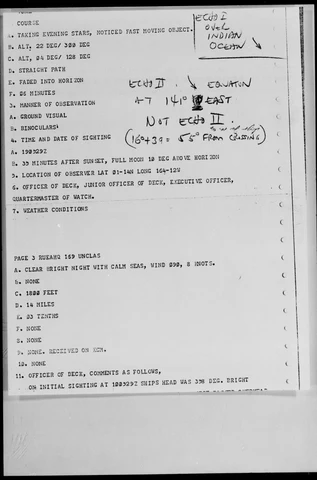 COURSE
A. TAKING EVENING STARS, NOTICED FAST MOVING OBJECT.
B. ALT, 22 DEG/ 300 DEG
C. ALT, 04 DEG/ 120 DEG
D. STRAIGHT PATH
E. FADED INTO HORIZON
F. 06 MINUTES
3. MANNER OF OBSERVATION
A. GROUND VISUAL
B. BINOCULARS
4. TIME AND DATE OF SIGHTING
A. 190329Z
B. 39 MINUTES AFTER SUNSET, FULL MOON 10 DEG ABOVE HORIZON
5. LOCATION OF OBSERVER LAT 01-14N LONG 164-12W
6. OFFICER OF DECK, JUNIOR OFFICER OF DECK, EXECUTIVE OFFICER,
QUARTERMASTER OF WATCH.
7. WEATHER CONDITIONS
ECHO I
OVER
INDIAN
OCEAN
ECHO II EQUATOR
AT 141° EAST
NOT ECHO II.
(16+39= 55° FROM CROSSING)
PAGE 3 RUEAHQ 169 UNCLAS
A. CLEAR BRIGHT NIGHT WITH CALM SEAS, WIND 090, 8 KNOTS.
B. NONE
C. 1800 FEET
D. 14 MILES
E. 03 TENTHS
F. NONE
8. NONE
9. NONE. RECEIVED ON ECM.
10. NONE
11. OFFICER OF DECK, COMMENTS AS FOLLOWS,
ON INITIAL SIGHTING AT 190329Z SHIPS HEAD WAS 398 DEG. BRIGHT